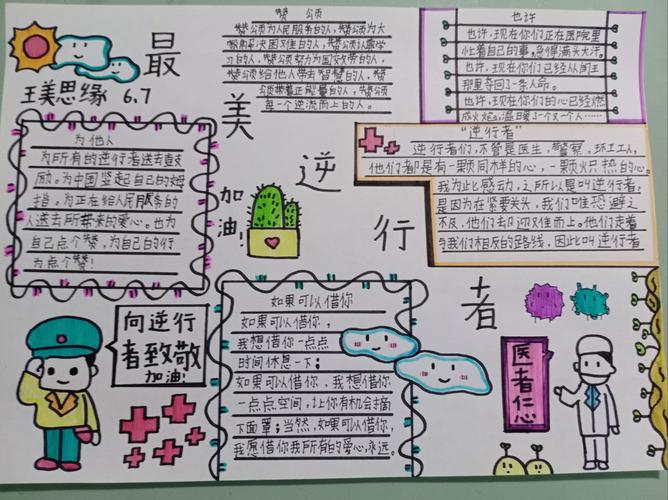 最美逆行者
王美思缘 6.7
赞 颂
赞颂为人民服务的人，赞颂为大
家解决困难的人，赞颂认真学
习的人，赞颂努力为国效劳的人，
赞颂给他人带去智慧的人，
赞颂带着正能量的人，赞颂
每一个逆流而上的人。
也许
也许，现在你们正在医院里
忙着自己的事，急得满头大汗，
也许，现在你们已经从阎王
那里夺回了一条人命。
也许，现在你们的心已经燃
成火焰，温暖了一个又一个人……
为他人
为所有的逆行者送去鼓
励。为中国竖起自己的姆
指，为正在给人民服务的
人送去所带来的爱心。也为
自己点个赞，为自己的行
为点个赞！
加油！
“逆行者”
逆行者们，不管是医生，警察，环工工人，
他们都是有一颗同样的心，一颗火只热的心。
我为此感动，之所以是叫逆行者，
是因为在紧要关头，我们唯恐避之
不及，他们去迎难而上。他们走着
与我们相反的路线，因此叫逆行者
向逆行
者致敬
加油！
如果可以借你
如果可以借你，
我想借你一点点
时间休息一下；
如果可以借你，我想借你
一点点空间，让你有机会摘
下面罩；当然，如果可以借你，
我愿借你我所有的爱心，永远。
医者仁心